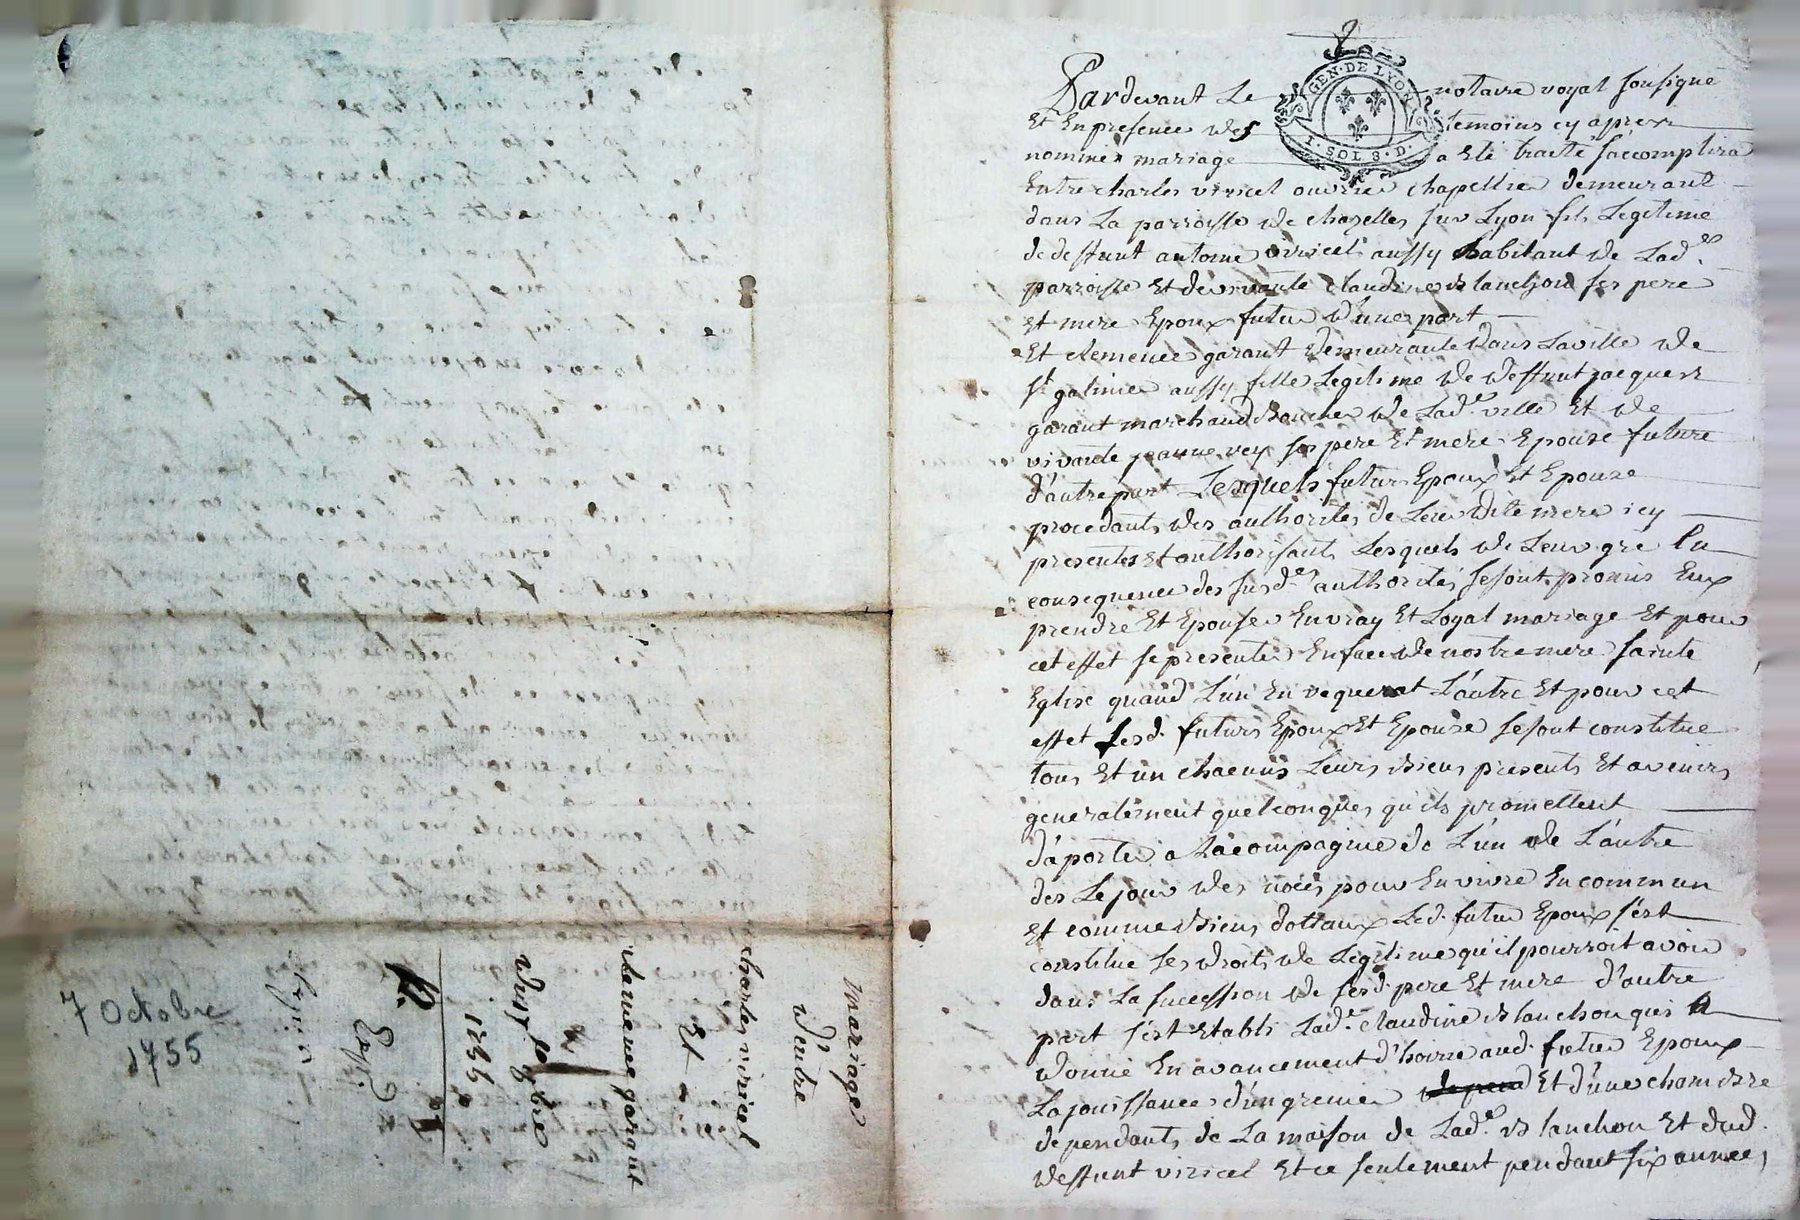 mariage
D'entre
charles viricel
Et
clemence garant
Du 7e 8bre
1755
Expe.
7 Octobre
1755
GEN·DE LYON
I·SOL 8·D·
Pardevant Le notaire royal soussigné
Et En presence Des temoins cy apres
nommés mariage a Eté traité s'accomplira
Entre charles viricel ouvrier chapellier demeurant
dans La parroisse de chazelles sur Lyon fils Legitime
de deffunt antoine viricel aussy habitant de Lad.e
parroisse Et de vivante claudine blanchon ses pere
et mere Epoux futur D'une part
Et clemence garant demeurante Dans La ville de
st galmier aussy fille Legitime De Deffunt jacques
garant marchand boucher de Lad.e ville Et de
vivante jeanne rey ses pere Et mere Epouse future
d'autre part Lesquels futurs Epoux Et Epouse
procedants des authorités de Leur dite mere icy
presentes et authorisants Lesquels de Leur gré En
consequence des susd.es authorités se sont promis Eux
prendre Et Epouser En vray Et Loyal mariage Et pour
cet effet se presenter En face de nostre mere sainte
Eglise quand L'un En requerat L'autre Et pour cet
effet Lesd. futurs Epoux Et Epouse se sont constitue
tous Et un chacuns Leurs biens presents Et avenirs
generalement quelconques qu'ils promettent
d'aporter a La compagnie de L'un de L'autre
des Le jour des noces pour En vivre En commun
Et comme biens dottaux Led. futur Epoux s'est
constitue ses droits de Legitime qu'il pourroit avoir
dans La succession de sesd. pere Et mere d'autre
part s'est Etabli Lad.e claudine blanchon qui a
Donné En avancement d'hoirie aud. futur Epoux
La jouissance d'un grenier Et d'une chambre
dependants de La maison de Lad.e blanchon Et dud.
Deffunt viricel Et ce seulement pendant six années